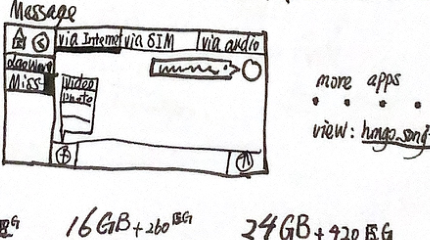 Message
via Internet via SIM via audio
Miss
video
photo
more apps
view:
16GB+260
24GB+920